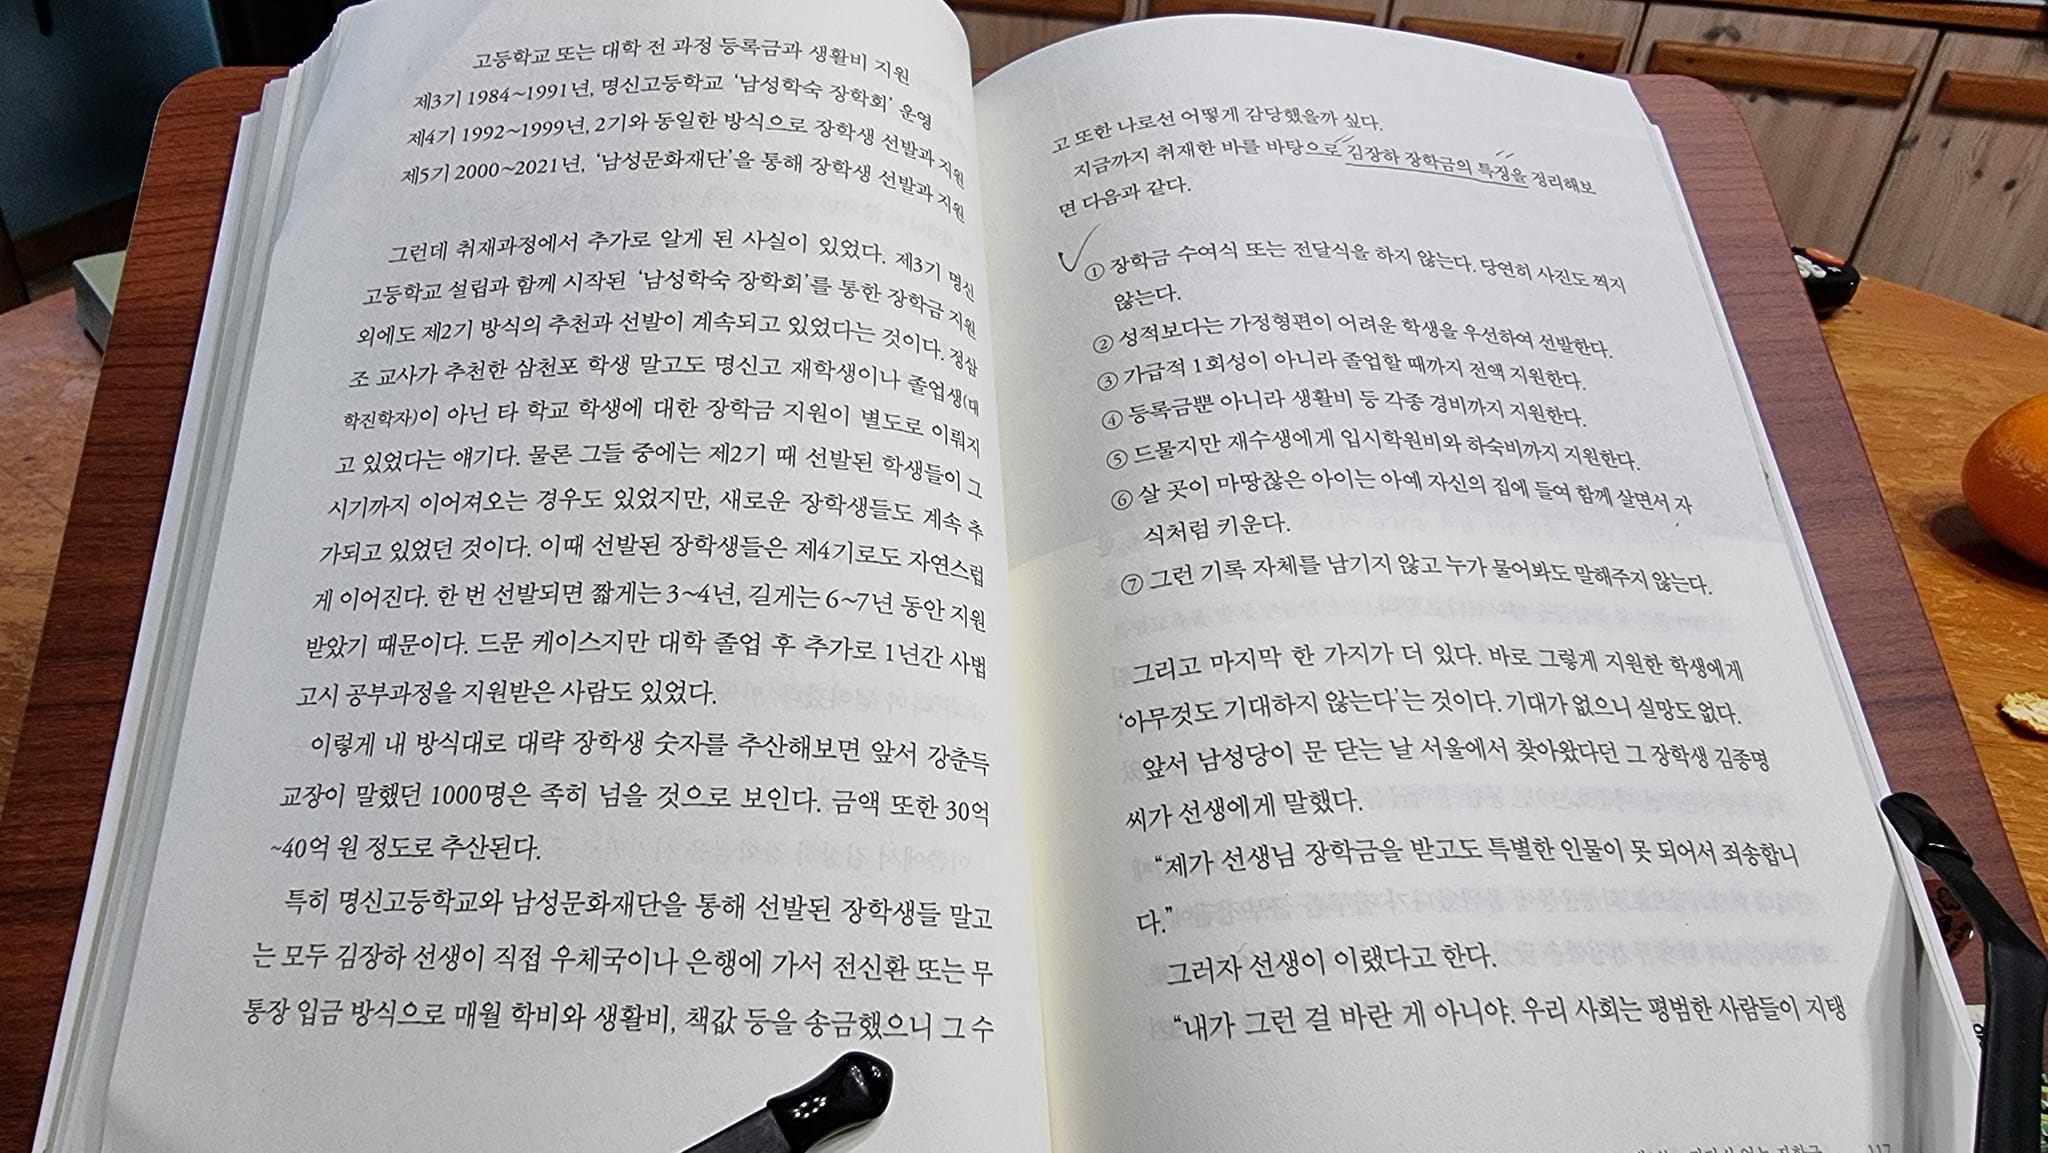 고등학교 또는 대학 전 과정 등록금과 생활비 지원
제3기 1984~1991년, 명신고등학교 ‘남성학숙 장학회’ 운영
제4기 1992~1999년, 2기와 동일한 방식으로 장학생 선발과 지원
제5기 2000~2021년, ‘남성문화재단’을 통해 장학생 선발과 지원
그런데 취재과정에서 추가로 알게 된 사실이 있었다. 제3기 명신
고등학교 설립과 함께 시작된 ‘남성학숙 장학회’를 통한 장학금 지원
외에도 제2기 방식의 추천과 선발이 계속되고 있었다는 것이다. 정삼
조 교사가 추천한 삼천포 학생 말고도 명신고 재학생이나 졸업생(대
학진학자)이 아닌 타 학교 학생에 대한 장학금 지원이 별도로 이뤄지
고 있었다는 얘기다. 물론 그들 중에는 제2기 때 선발된 학생들이 그
시기까지 이어져오는 경우도 있었지만, 새로운 장학생들도 계속 추
가되고 있었던 것이다. 이때 선발된 장학생들은 제4기로도 자연스럽
게 이어진다. 한 번 선발되면 짧게는 3~4년, 길게는 6~7년 동안 지원
받았기 때문이다. 드문 케이스지만 대학 졸업 후 추가로 1년간 사법
고시 공부과정을 지원받은 사람도 있었다.
이렇게 내 방식대로 대략 장학생 숫자를 추산해보면 앞서 강춘득
교장이 말했던 1000명은 족히 넘을 것으로 보인다. 금액 또한 30억
~40억 원 정도로 추산된다.
특히 명신고등학교와 남성문화재단을 통해 선발된 장학생들 말고
는 모두 김장하 선생이 직접 우체국이나 은행에 가서 전신환 또는 무
통장 입금 방식으로 매월 학비와 생활비, 책값 등을 송금했으니 그 수
고 또한 나로선 어떻게 감당했을까 싶다.
지금까지 취재한 바를 바탕으로 김장하 장학금의 특징을 정리해보
면 다음과 같다.
① 장학금 수여식 또는 전달식을 하지 않는다. 당연히 사진도 찍지
않는다.
② 성적보다는 가정형편이 어려운 학생을 우선하여 선발한다.
③ 가급적 1회성이 아니라 졸업할 때까지 전액 지원한다.
④ 등록금뿐 아니라 생활비 등 각종 경비까지 지원한다.
⑤ 드물지만 재수생에게 입시학원비와 하숙비까지 지원한다.
⑥ 살 곳이 마땅찮은 아이는 아예 자신의 집에 들여 함께 살면서 자
식처럼 키운다.
⑦ 그런 기록 자체를 남기지 않고 누가 물어봐도 말해주지 않는다.
그리고 마지막 한 가지가 더 있다. 바로 그렇게 지원한 학생에게
‘아무것도 기대하지 않는다’는 것이다. 기대가 없으니 실망도 없다.
앞서 남성당이 문 닫는 날 서울에서 찾아왔다던 그 장학생 김종명
씨가 선생에게 말했다.
“제가 선생님 장학금을 받고도 특별한 인물이 못 되어서 죄송합니
다.”
그러자 선생이 이랬다고 한다.
“내가 그런 걸 바란 게 아니야. 우리 사회는 평범한 사람들이 지탱